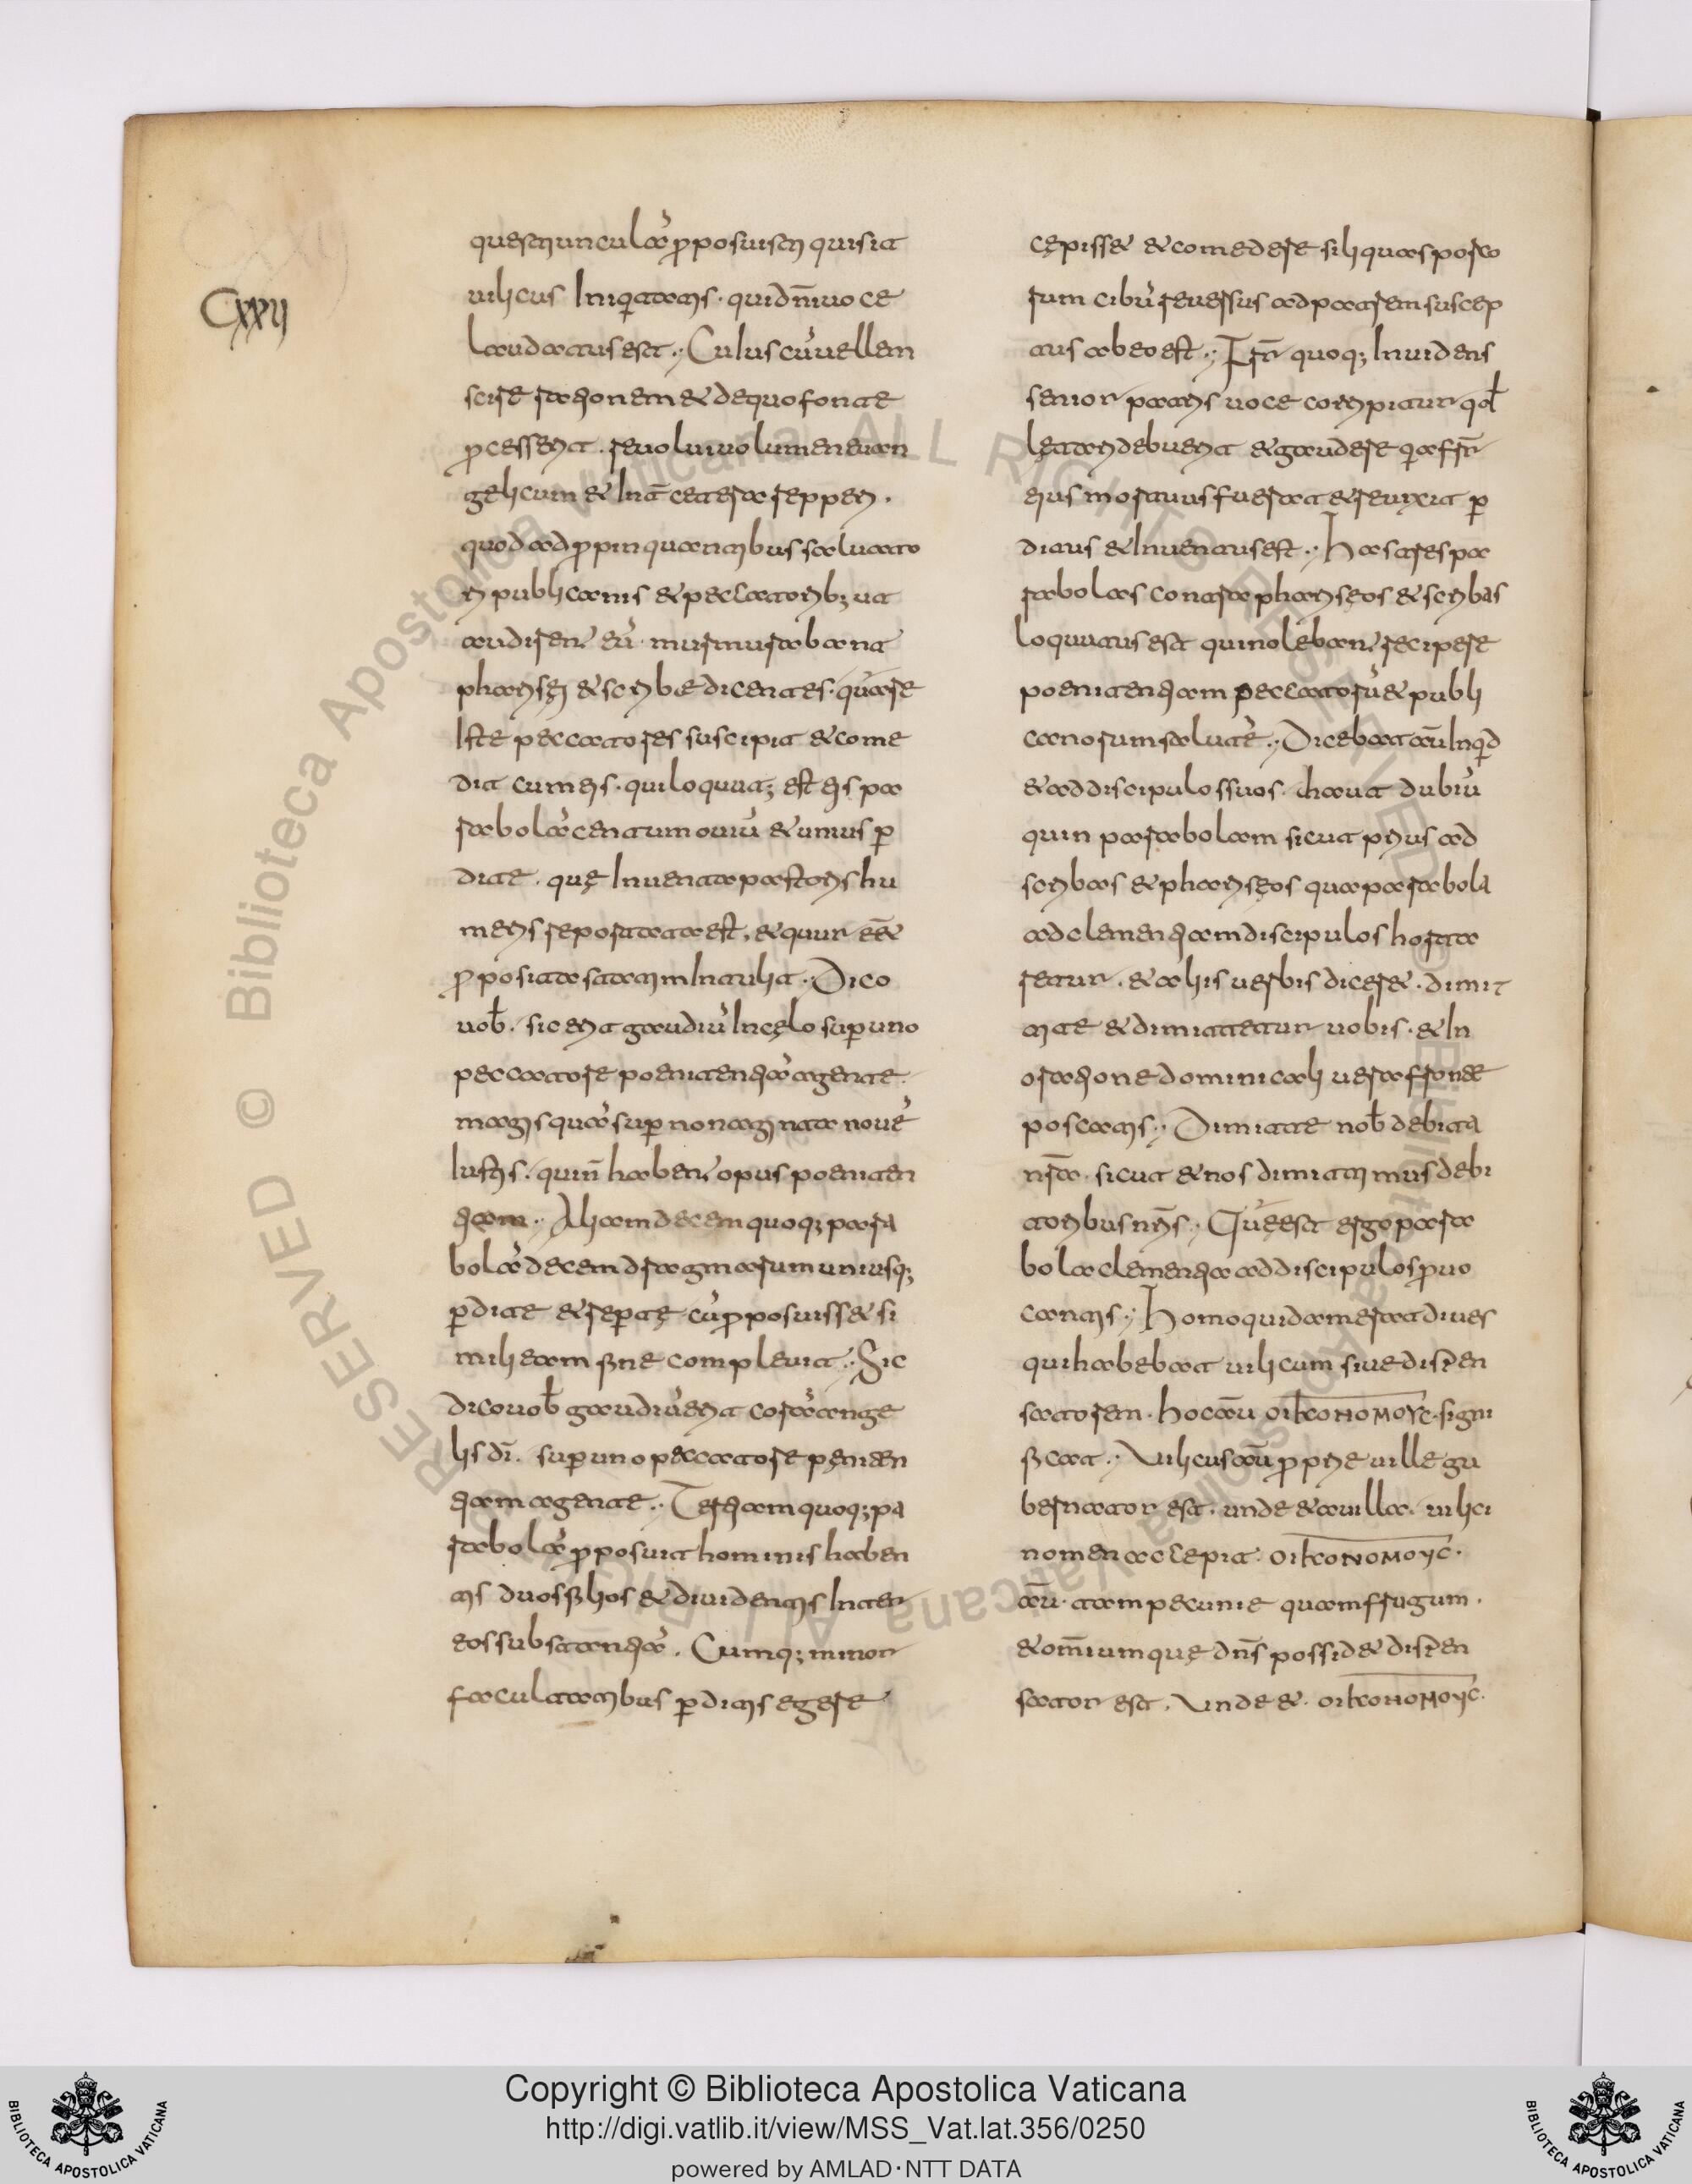 CXXII
questiunculā ꝓposuisti quis sit
uilicus Iniqitatis. quid n̄i uoce
laudatus est. Cuius cū uellem
scire rationem & de quo fonte
ꝓcesserit. reuolui uolumen euan
gelicum & Int̄ cetera repperi.
quod ad ꝓpinquantibus saluato
ri publicanis & peccatorib; ut
audiren̄ eū. murmurabant
pharisęi & scribę dicentes. quare
Iste peccatores suscipit & come
dit cum eis. qui loquut; est eis pa
rabolā centum ouiū & unius ꝑ
dite. quę Inuenta pastoris hu
meris reportata est, & quur eēt
ꝓposita statim Intulit. Dico
uob̄. sic erit gaudiū In cęlo suꝑ uno
peccatore poenitentiā agente.
magis quā suꝑ nonaginta nouē
Iustis. qui n̄ haben̄ opus poeniten
tiam. Aliam decem quoq; para
bolā decem dragmarum uniusq;
ꝑdite & reꝑtę cū ꝓposuiss& si
mili eam fine compleuit. Sic
dico uob̄ gaudiū erit corā ange
lis dī. suꝑ uno peccatore pęniten
tiam agente. Tertiam quoq; pa
rabolā ꝓposuit hominis haben
tis duos filios & diuidentis Inter
eos substantiā. Cumq; minor
facultatibus ꝑditis egere
cępiss& & comedere siliquas porco
rum cibū reuersus ad patrem suscep
tus ab eo est. Fr̄ quoq; Inuidens
senior patris uoce corripitur qđ
lętari debuerit & gaudere qia fr̄
eius mortuus fuerat & reuixit ꝑ
ditus & Inuentus est. Has tres pa
rabolas contra pharisęos & scribas
loquutus est qui nolebān recipere
poenitentiam peccatorū & publi
canorum salutē. Dicebat aū Inqid
& ad discipulos suos. haut dubiū
quin parabolam sicut prius ad
scribas & pharisęos qua parabola
ad clementiam discipulos horta
retur. & aliis uerbis diceret. dimit
tite & dimittetur uobis. & In
oratione dominicali uestra fronte
poscatis. Dimitte nob̄ debita
nr̄a. sicut & nos dimittimus debi
toribus nr̄is. Quę est ergo para
bola clementia ad discipulos ꝓuo
cantis. Homo quidam erat diues
qui habebat uilicum siue dispen
satorem. hoc aū οικονομους. signi
ficat. Uilicus aū ꝓprie uille gu
bernator est. unde & a uilla. uilici
nomen accepit. οικονομους.
aū. tam pecunie quam frugum.
& om̄ium quę dn̄s possid& dispen
sator est. Unde &. οικονομους.
© Biblioteca Apostolica Vaticana ALL RIGHTS RESERVED
Copyright © Biblioteca Apostolica Vaticana
http://digi.vatlib.it/view/MSS_Vat.lat.356/0250
powered by AMLAD·NTT DATA
BIBLIOTECA APOSTOLICA VATICANA
BIBLIOTECA APOSTOLICA VATICANA